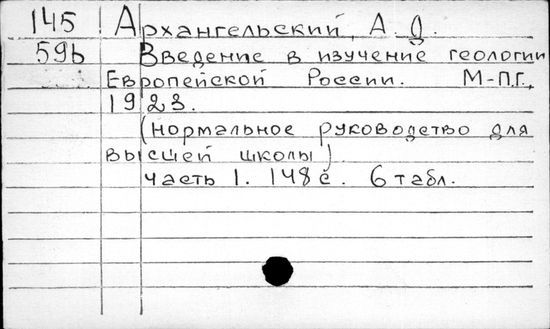 145 Архангельский, А. Д.
59b Введение в изучение геологии
Европейской России. М-П.Г.,
1923.
(нормальное руководство для
высшей школы)
часть 1. 148 с. 6 табл.